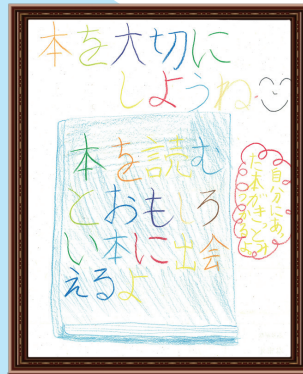 本を大切に
しようね
本を読む
とおもしろ
い本に出会
えるよ
自分にあっ
た本がきっとみ
つかるよ